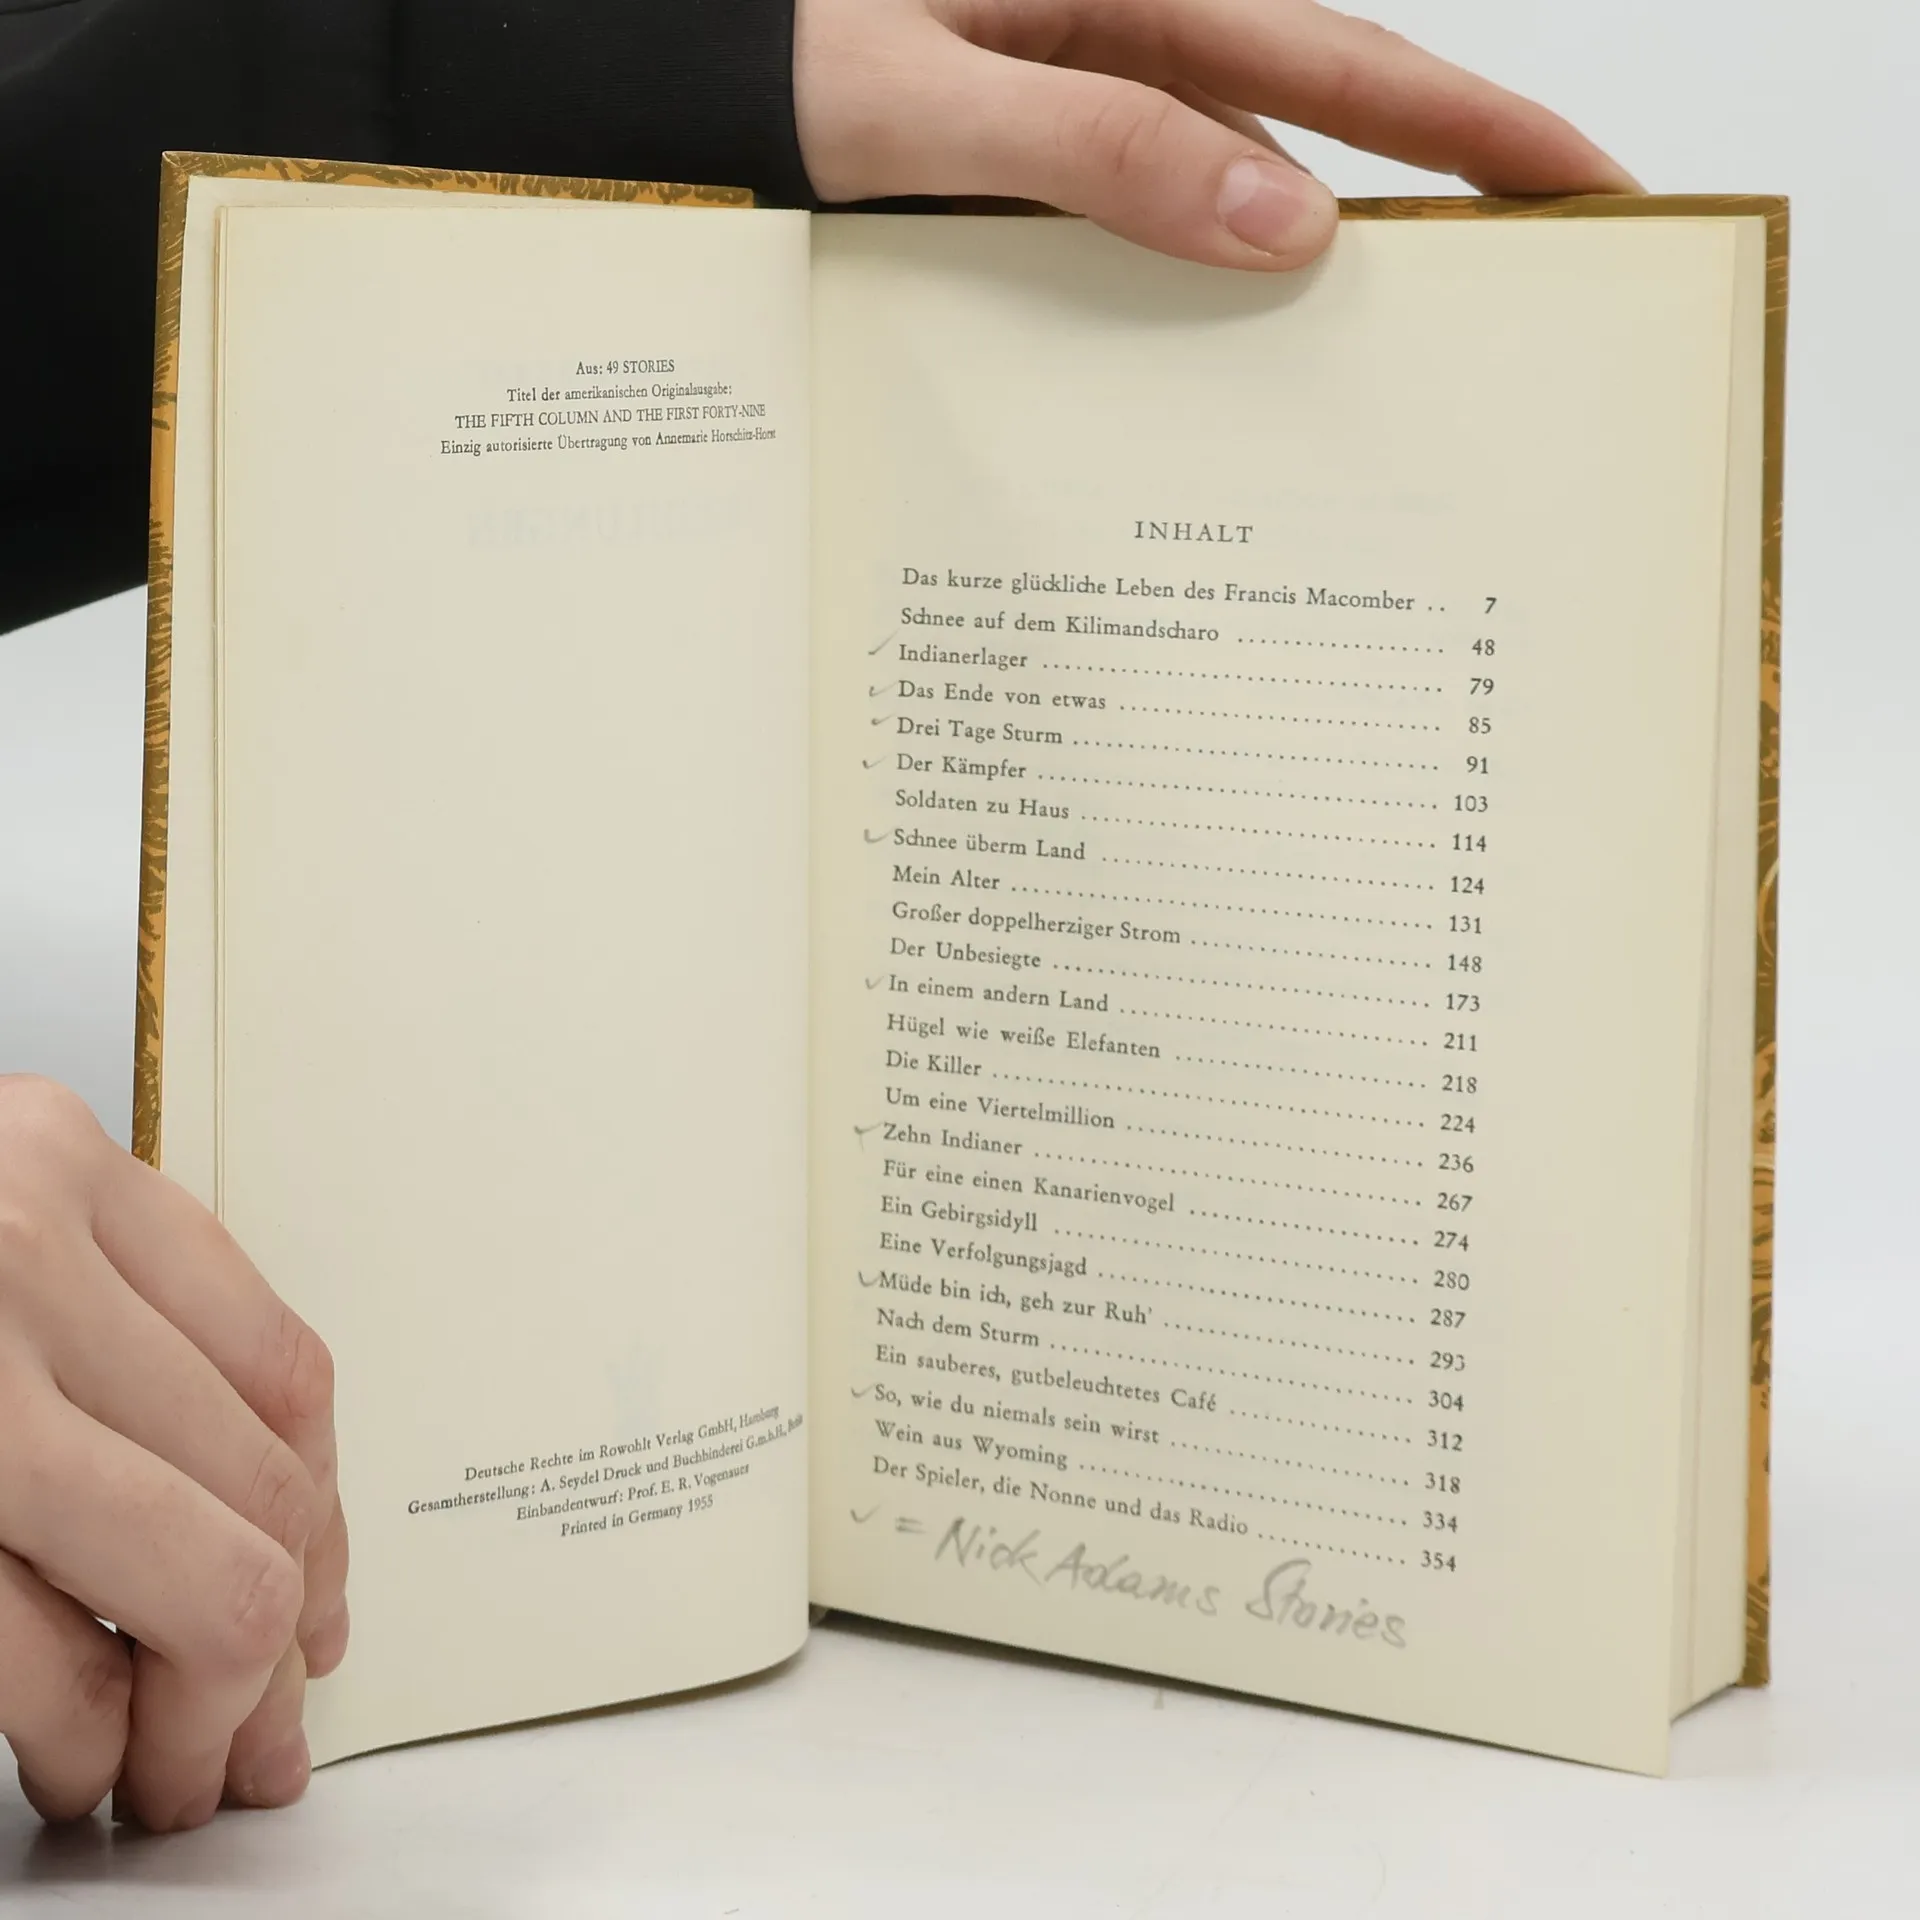 Aus: 49 STORIES
Titel der amerikanischen Originalausgabe:
THE FIFTH COLUMN AND THE FIRST FORTY-NINE
Einzig autorisierte Übertragung von Annemarie Horschitz-Horst
Deutsche Rechte im Rowohlt Verlag GmbH, Hamburg
Gesamtherstellung: A. Seydel Druck und Buchbinderei G.m.b.H., Berlin
Einbandentwurf: Prof. E. R. Vogenauer
Printed in Germany 1955
INHALT
Das kurze glückliche Leben des Francis Macomber .. 7
Schnee auf dem Kilimandscharo .................. 48
✓ Indianerlager .................................... 79
✓ Das Ende von etwas ............................ 85
✓ Drei Tage Sturm ................................ 91
✓ Der Kämpfer .................................... 103
Soldaten zu Haus ................................ 114
✓ Schnee überm Land .............................. 124
Mein Alter ...................................... 131
Großer doppelherziger Strom .................... 148
Der Unbesiegte .................................. 173
✓ In einem andern Land .......................... 211
Hügel wie weiße Elefanten ...................... 218
Die Killer ...................................... 224
Um eine Viertelmillion .......................... 236
✓ Zehn Indianer .................................. 267
Für eine einen Kanarienvogel .................... 274
Ein Gebirgsidyll ................................ 280
Eine Verfolgungsjagd ............................ 287
✓ Müde bin ich, geh zur Ruh' ...................... 293
Nach dem Sturm ................................ 304
Ein sauberes, gutbeleuchtetes Café ................ 312
✓ So, wie du niemals sein wirst .................... 318
Wein aus Wyoming .............................. 334
Der Spieler, die Nonne und das Radio ............ 354
✓ = Nick Adams Stories